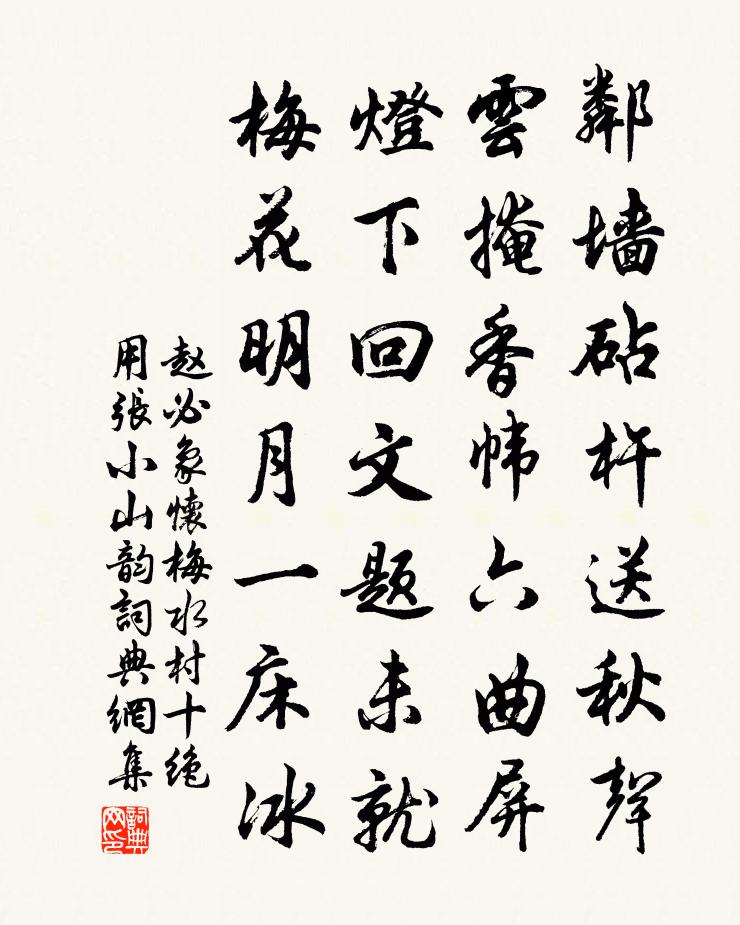 鄰墻砧杵送秋聲
雲掩香幃六曲屏
燈下回文题未就
梅花明月一床冰
赵必象懷梅水村十絶
用張小山韵詞典網集
詞典網印